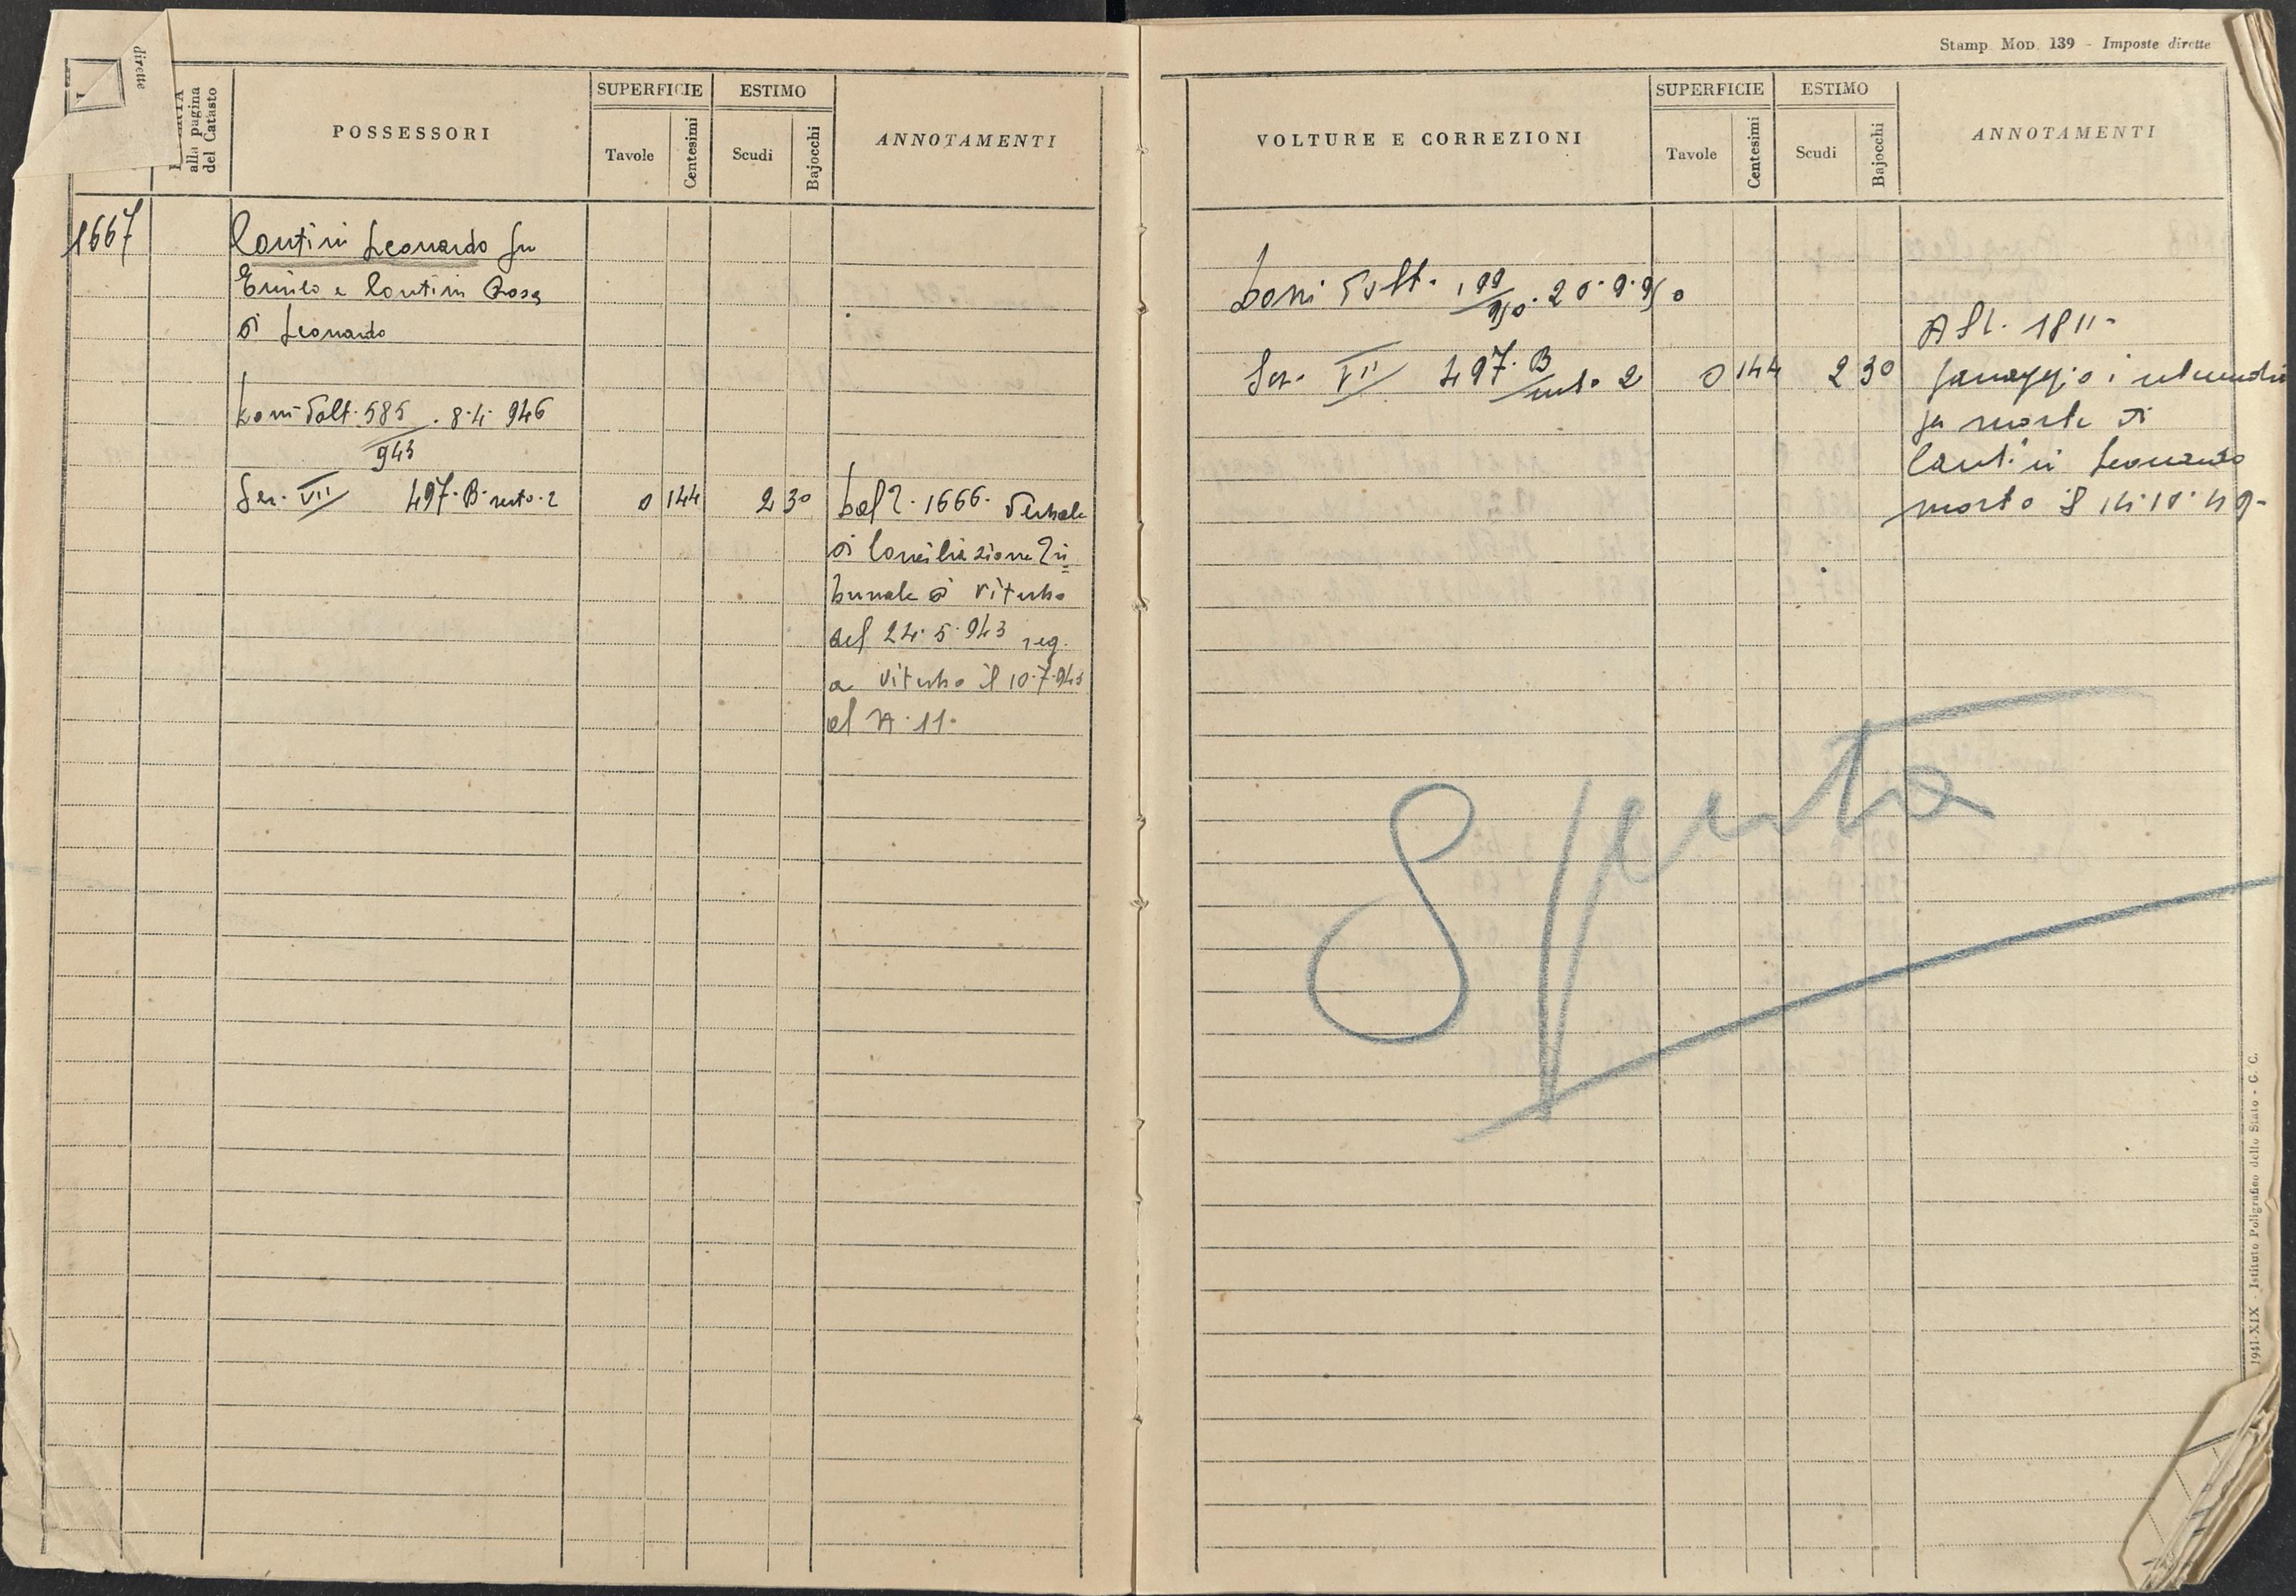 dirette
alla pagina
del Catasto
POSSESSORI
SUPERFICIE
Tavole
Centesimi
ESTIMO
Scudi
Bajocchi
ANNOTAMENTI
1667
Contini Leonardo fu
Emilio e Contini Rosa
di Leonardo
Dom Volt. 585/943 . 8.4.946
Sez. VII 497. B. resto. 2 0 144 2 30
Dal P. 1666. Verbale
di Conciliazione Tri=
bunale di Viterbo
del 24.5.943 reg.
a Viterbo il 10.7.943
al N. 11.
Stamp. Mod. 139 - Imposte dirette
VOLTURE E CORREZIONI
SUPERFICIE
Tavole
Centesimi
ESTIMO
Scudi
Bajocchi
ANNOTAMENTI
Dom Volt. 199/950. 20.9.950
Sez. VII 497. B 2 0 144 2 30
Al P. 1811.
Passaggio
per morte di
Contini Leonardo
morto il
Spenta
1941-XIX - Istituto Poligrafico dello Stato - G. C.